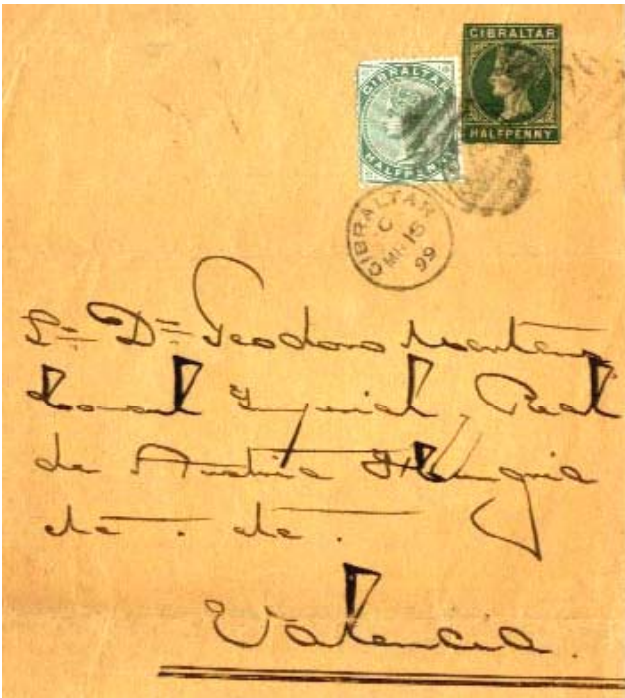 GIBRALTAR
HALFPENNY
GIBRALTAR
HALFPENNY
GIBRALTAR
C
MR 15
99
Sr. Dn. Teodoro
Consul Imperial Real
de Austria Hungria
etc. etc.
Valencia.